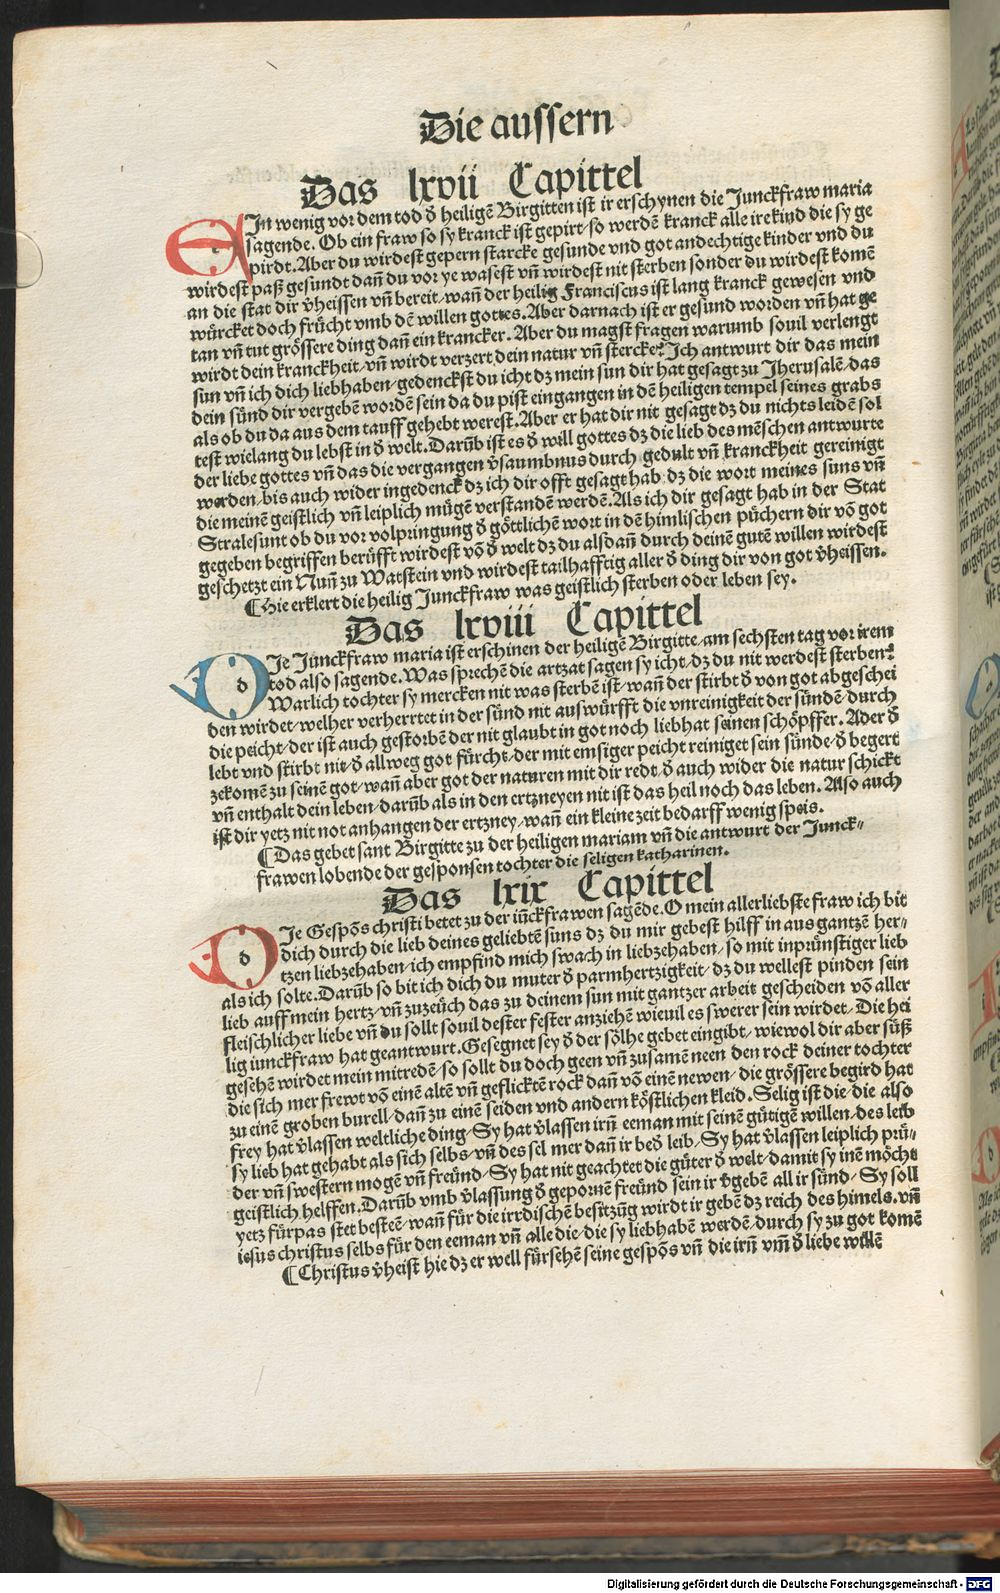 Die aussern
Das lxvii Capittel
EJn wenig vor dem tod d̕ heiligē Birgitten ist ir erschynen die Junckfraw maria
sagende. Ob ein fraw so sy kranck ist gepirt/so werdē kranck alle ire kind die sy ge
pirdt. Aber du wirdest gepern starcke gesunde vnd got andechtige kinder vnd du
wirdest paß gesundt dañ du vor ye wasest vñ wirdest nit sterben sonder du wirdest komē
an die stat dir v̕heissen vñ bereit/wañ der heilig Franciscus ist lang kranck gewesen vnd
würcket doch frücht vmb dē willen gottes. Aber darnach ist er gesund worden vñ hat ge
tan vñ tut grössere ding dañ ein krancker. Aber du magst fragen warumb souil verlengt
wirdt dein kranckheit/vñ wirdt verzert dein natur vñ stercke? Jch antwurt dir das mein
sun vñ ich dich liebhaben/gedenckst du icht dz mein sun dir hat gesagt zu Jherusalē/das
dein sünd dir vergebē wordē sein da du pist eingangen in dē heiligen tempel seines grabs
als ob du da aus dem tauff gehebt werest. Aber er hat dir nit gesagt dz du nichts leidē sol
test wielang du lebst in d̕ welt. Darūb ist es d̕ will gottes dz die lieb des mēschen antwurte
der liebe gottes vñ das die vergangen v̕saumbnus durch gedult vñ kranckheit gereinigt
werden. bis auch wider ingedenck dz ich dir offt gesagt hab dz die wort meines suns vñ
die meinē geistlich vñ leiplich mügē verstandē werdē. Als ich dir gesagt hab in der Stat
Stralesunt ob du vor volpringung d̕ göttlichē wort in dē himlischen püchern dir vō got
gegeben begriffen berüfft wirdest vō d̕ welt dz du alsdañ durch deinē gutē willen wirdest
geschetzt ein Nuñ zu Watstein vnd wirdest tailhafftig aller d̕ ding dir von got v̕heissen.
¶ Hie erklert die heilig Junckfraw was geistlich sterben oder leben sey.
Das lxviii Capittel
dJe Junckfraw maria ist erschinen der heiligē Birgitte/am sechsten tag vor irem
tod also sagende. Was sprechē die artzat sagen sy icht/dz du nit werdest sterben?
Warlich tochter sy mercken nit was sterbē ist/wañ der stirbt d̕ von got abgeschei
den wirdet/welher verherrtet in der sünd nit auswürfft die vnreinigkeit der sündē/durch
die peicht/der ist auch gestorbē der nit glaubt in got noch liebhat seinen schöpffer. Ader d̕
lebt vnd stirbt nit/d̕ allweg got fürcht/der mit emsiger peicht reiniget sein sünde/d̕ begert
zekomē zu seinē got/wañ aber got der naturen mit dir redt/d̕ auch wider die natur schickt
vñ enthalt dein leben/darūb als in den ertzneyen nit ist das heil noch das leben. Also auch
ist dir yetz nit not anhangen der ertzney/wañ ein kleine zeit bedarff wenig speis.
¶ Das gebet sant Birgitte zu der heiligen mariam vñ die antwurt der Junck⸗
frawen lobende der gesponsen tochter die seligen katharinen.
Das lxix Capittel
dJe Gespōs christi betet zu der iūckfrawen sagēde. O mein allerliebste fraw ich bit
dich durch die lieb deines geliebtē suns dz du mir gebest hilff in aus gantzē her⸗
tzen liebzehaben/ich empfind mich swach in liebzehaben/so mit inprünstiger lieb
als ich solte. Darūb so bit ich dich du muter d̕ parmhertzigkeit/dz du wellest pinden sein
lieb auff mein hertz/vñ zuzeüch das zu deinem sun mit gantzer arbeit gescheiden vō aller
fleischlicher liebe vñ du sollt souil dester fester anziehē wieuil es swerer sein wirdet. Die hei
lig iunckfraw hat geantwurt. Gesegnet sey d̕ der sölhe gebet eingibt/wiewol dir aber süß
gesehē wirdet mein mitredē/so sollt du doch geen vñ zusamē neen den rock deiner tochter
die sich mer frewt vō einē altē vñ geflicktē rock dañ vō einē newen/die grössere begird hat
zu einē groben burell/dañ zu einē seiden vnd andern köstlichen kleid. Selig ist die/die also
frey hat v̕lassen weltliche ding/Sy hat v̕lassen irñ eeman mit seinē gütigē willen/des leib
sy lieb hat gehabt als sich selbs/vñ des sel mer dañ ir bed̕ leib/Sy hat v̕lassen leiplich prü⸗
der vñ swestern mogē vñ freünd/Sy hat nit geachtet die güter d̕ welt/damit sy inē möcht
geistlich helffen. Darūb vmb v̕lassung d̕ gepornē freünd sein ir v̕gebē all ir sünd/Sy soll
yetz fürpas stet besteē/wañ für die irrdischē besitzūg wirdt ir gebē dz reich des himels. vñ
iesus christus selbs für den eeman vñ alle die/die sy liebhabē werdē/durch sy zu got komē
¶ Christus v̕heist hie dz er well fürsehē seine gespōs vñ die irñ vm̄ d̕ liebe willē
Digitalisierung gefördert durch die Deutsche Forschungsgemeinschaft - DFG